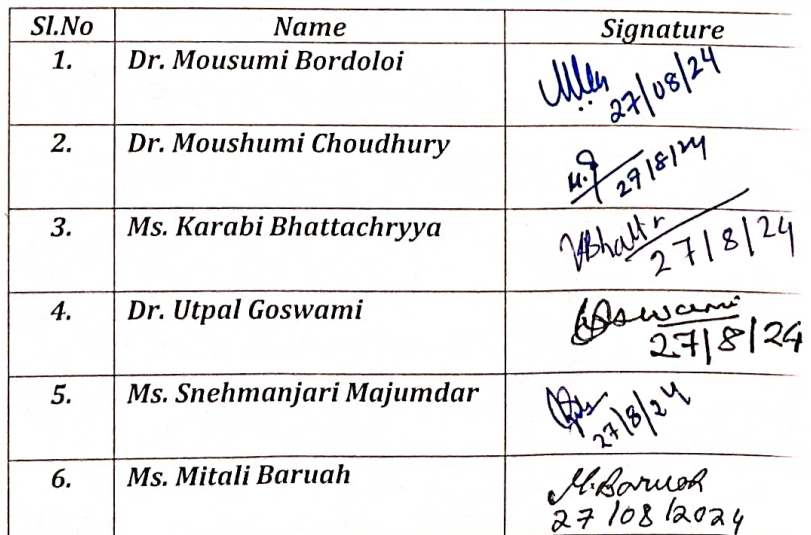 Sl.No Name Signature
1. Dr. Mousumi Bordoloi
27/08/24
2. Dr. Moushumi Choudhury
27/8/24
3. Ms. Karabi Bhattachryya
27/8/24
4. Dr. Utpal Goswami Goswami
27/8/24
5. Ms. Snehmanjari Majumdar
27/8/24
6. Ms. Mitali Baruah M. Baruah
27/08/2024